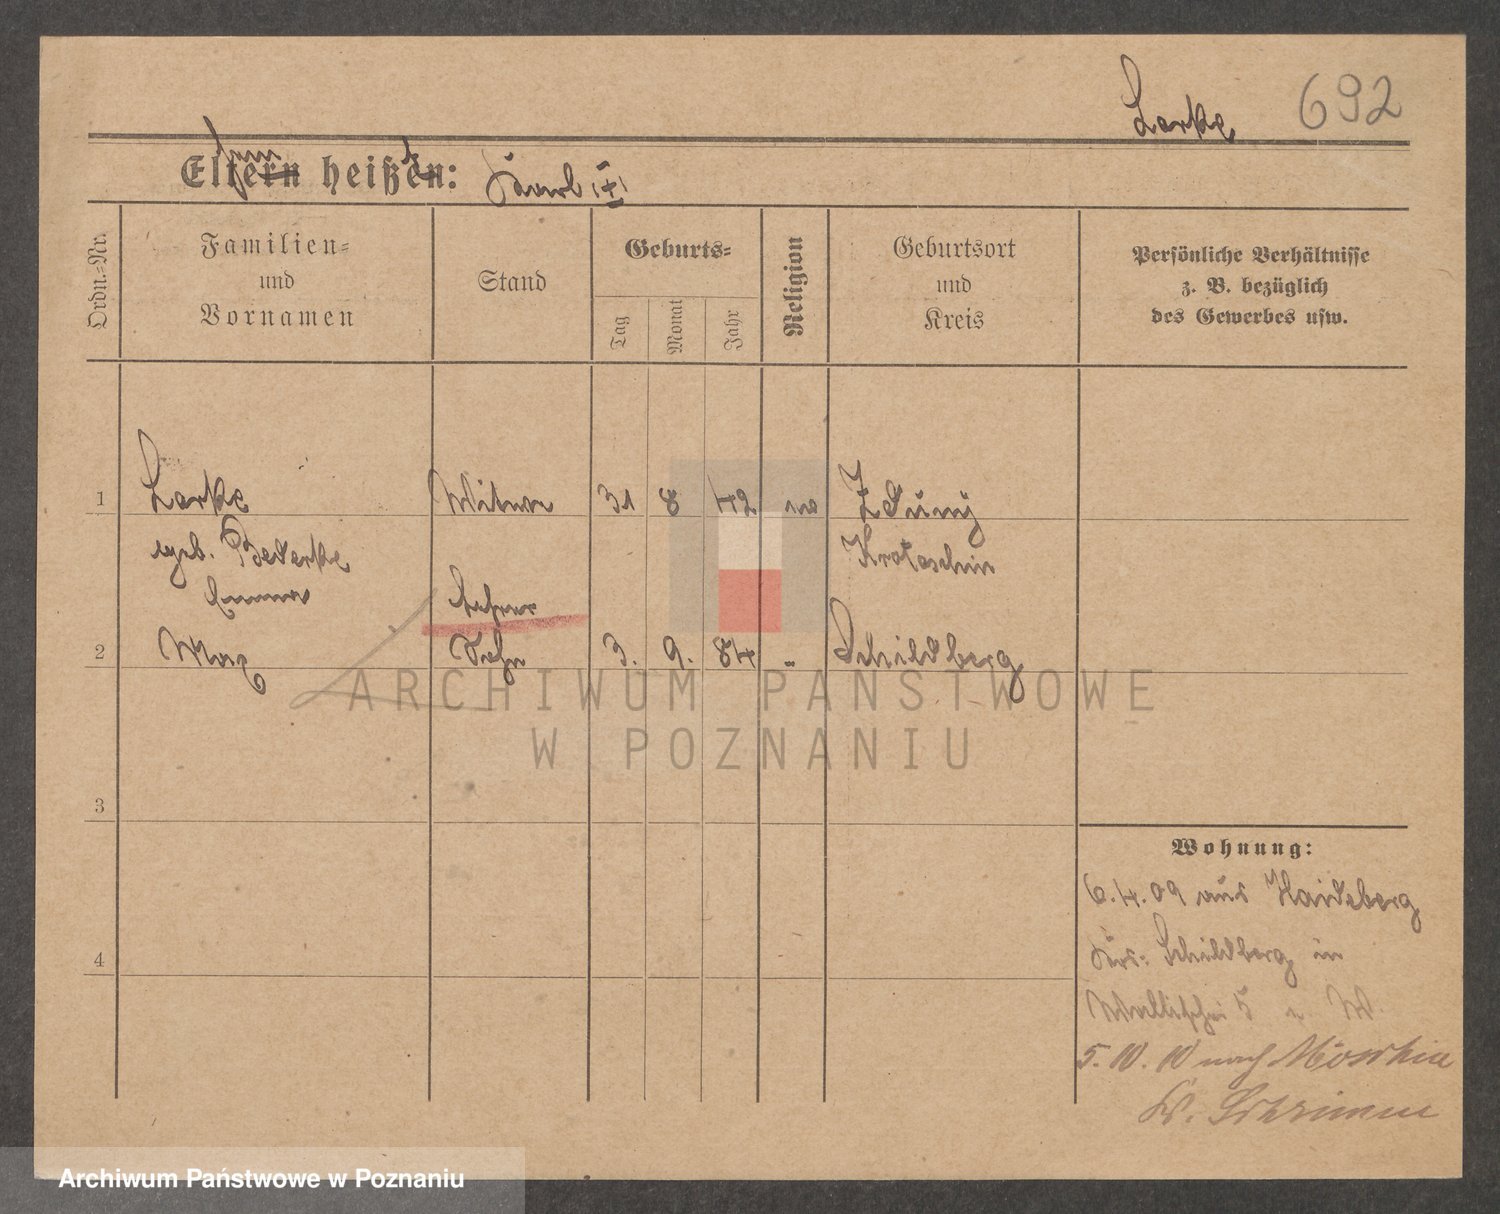 Larke 692
Eltern heißen: Karl (†)
Ordn.-Nr.
Familien-
und
Vornamen
Stand
Geburts-
Tag
Monat
Jahr
Religion
Geburtsort
und
Kreis
Persönliche Verhältnisse
z. B. bezüglich
des Gewerbes usw.
1 Larke Witwe 31 8 42 ev Zduny
geb. Krotoschin
Emma
Lehrer
2 Max Sohn 3. 9. 84 " Schildberg
ARCHIWUM PAŃSTWOWE
W POZNANIU
3
4
Wohnung:
6.4.09 aus Haideberg
Krs: Schildberg in
Wallischei 5 W.
5.10.10 nach Moschin
Kr. Schrimm
Archiwum Państwowe w Poznaniu